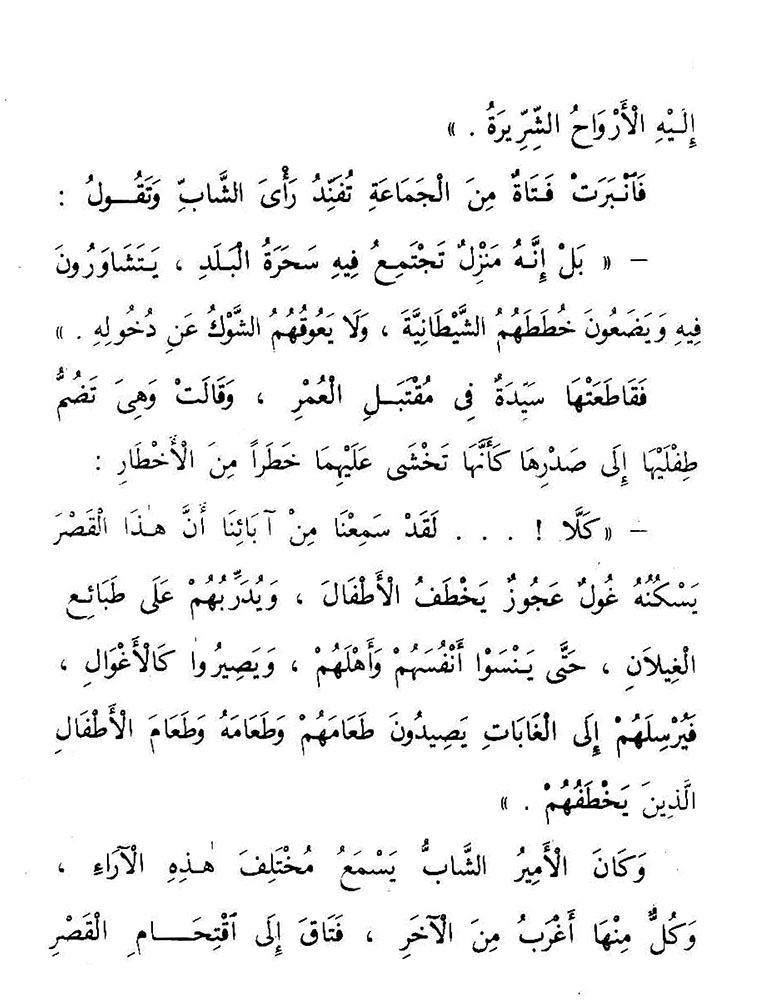 إِلَيْهِ الْأَرْوَاحُ الشِّرِّيرَةُ . »
فَٱنْبَرَتْ فَتَاةٌ مِنَ الْجَمَاعَةِ تُفَنِّدُ رَأْىَ الشَّابِّ وَتَقُــولُ :
– « بَلْ إِنَّهُ مَنْزِلٌ تَجْتَمِعُ فِيهِ سَحَرَةُ الْبَلَدِ ، يَتَشَاوَرُونَ
فِيهِ وَيَضَعُونَ خُطَطَهُمُ الشَّيْطَانِيَّةَ ، وَلَا يَعُوقُهُمُ الشَّوْكُ عَنِ دُخُولِهِ . »
فَقَاطَعَتْهَا سَيِّدَةٌ فِى مُقْتَبَـلِ الْعُمْرِ ، وَقَالَتْ وَهِىَ تَضُمُّ
طِفْلَيْهَا إِلَى صَدْرِهَا كَأَنَّهَا تَخْشَى عَلَيْهِمَا خَطَراً مِنَ الْأَخْطَارِ :
– « كَلَّا ! . . . لَقَدْ سَمِعْنَا مِنْ آبَائِنَا أَنَّ هٰذَا الْقَصْرَ
يَسْكُنُهُ غُولٌ عَجُوزٌ يَخْطَفُ الْأَطْفَالَ ، وَيُدَرِّبُهُمْ عَلَى طَبَائِعِ
الْغِيلَانِ ، حَتَّى يَنْسَوْا أَنْفُسَهُمْ وَأَهْلَهُمْ ، وَيَصِيرُوا كَالْأَغْوَالِ ،
فَيُرْسِلَهُمْ إِلَى الْغَابَاتِ يَصِيدُونَ طَعَامَهُمْ وَطَعَامَهُ وَطَعَامَ الْأَطْفَالِ
الَّذِينَ يَخْطَفُهُمْ . »
وَكَانَ الْأَمِيرُ الشَّابُّ يَسْمَعُ مُخْتَلِفَ هٰذِهِ الْآرَاءِ ،
وَكُلٌّ مِنْهَا أَغْرَبُ مِنَ الْآخَرِ ، فَتَاقَ إِلَى ٱقْتِحَــامِ الْقَصْرِ